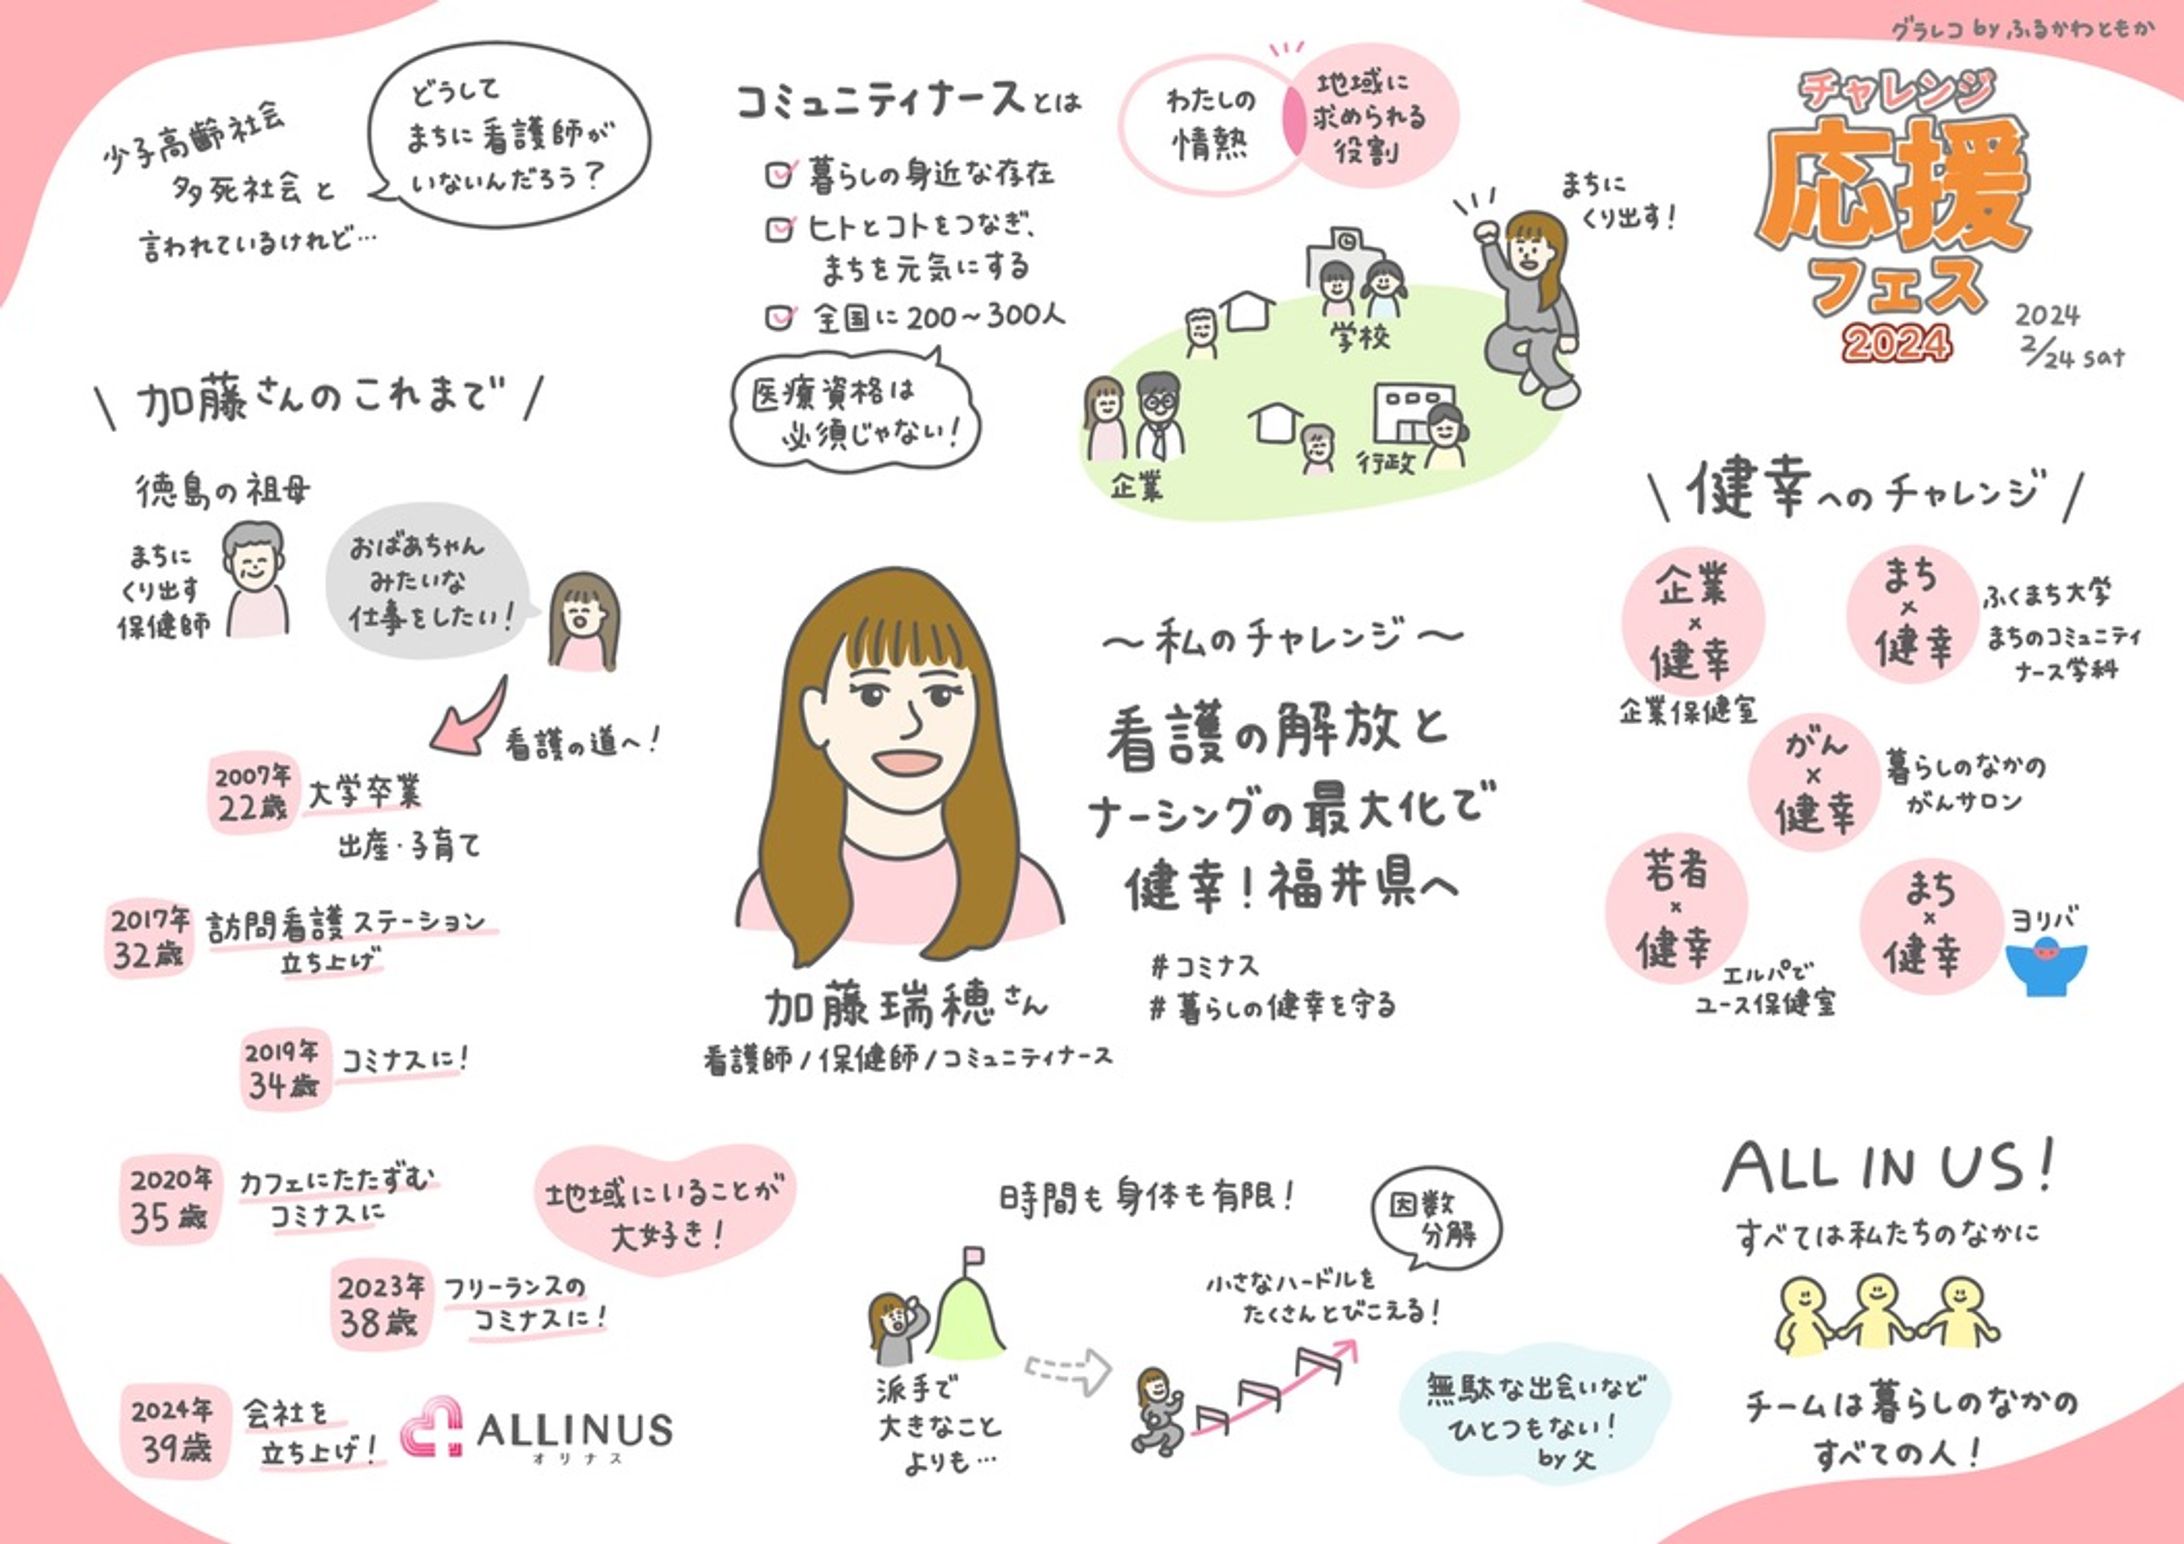 グラレコ by ふるかわともか
チャレンジ
応援
フェス
2024
2024
2/24 sat
少子高齢社会
多死社会と
言われているけれど…
どうして
まちに看護師が
いないんだろう?
コミュニティナースとは
暮らしの身近な存在
ヒトとコトをつなぎ、
まちを元気にする
全国に200～300人
医療資格は
必須じゃない!
わたしの
情熱
地域に
求められる
役割
まちに
くり出す!
学校
企業
行政
加藤さんのこれまで
徳島の祖母
まちに
くり出す
保健師
おばあちゃん
みたいな
仕事をしたい!
看護の道へ!
2007年
22歳
大学卒業
出産・子育て
2017年
32歳
訪問看護ステーション
立ち上げ
2019年
34歳
コミナスに!
2020年
35歳
カフェにたたずむ
コミナスに
地域にいることが
大好き!
2023年
38歳
フリーランスの
コミナスに!
2024年
39歳
会社を
立ち上げ!
ALLINUS
オリナス
～私のチャレンジ～
看護の解放と
ナーシングの最大化で
健幸!福井県へ
#コミナス
#暮らしの健幸を守る
加藤瑞穂さん
看護師/保健師/コミュニティナース
健幸へのチャレンジ
企業
×
健幸
企業保健室
まち
×
健幸
ふくまち大学
まちのコミュニティ
ナース学科
がん
×
健幸
暮らしのなかの
がんサロン
若者
×
健幸
エルパで
ユース保健室
まち
×
健幸
ヨリバ
時間も身体も有限!
派手で
大きなこと
よりも…
因数
分解
小さなハードルを
たくさんとびこえる!
無駄な出会いなど
ひとつもない!
by 父
ALL IN US!
すべては私たちのなかに
チームは暮らしのなかの
すべての人!